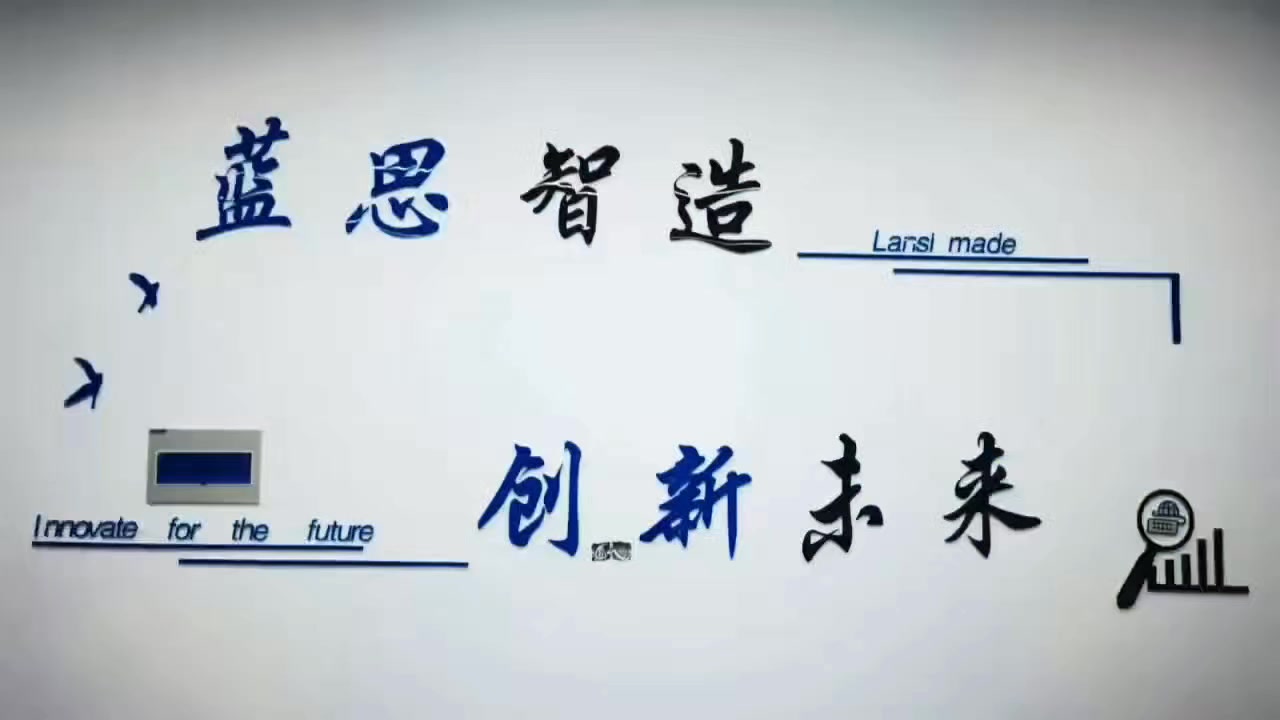 蓝思智造
Lansi made
Innovate for the future
创新未来